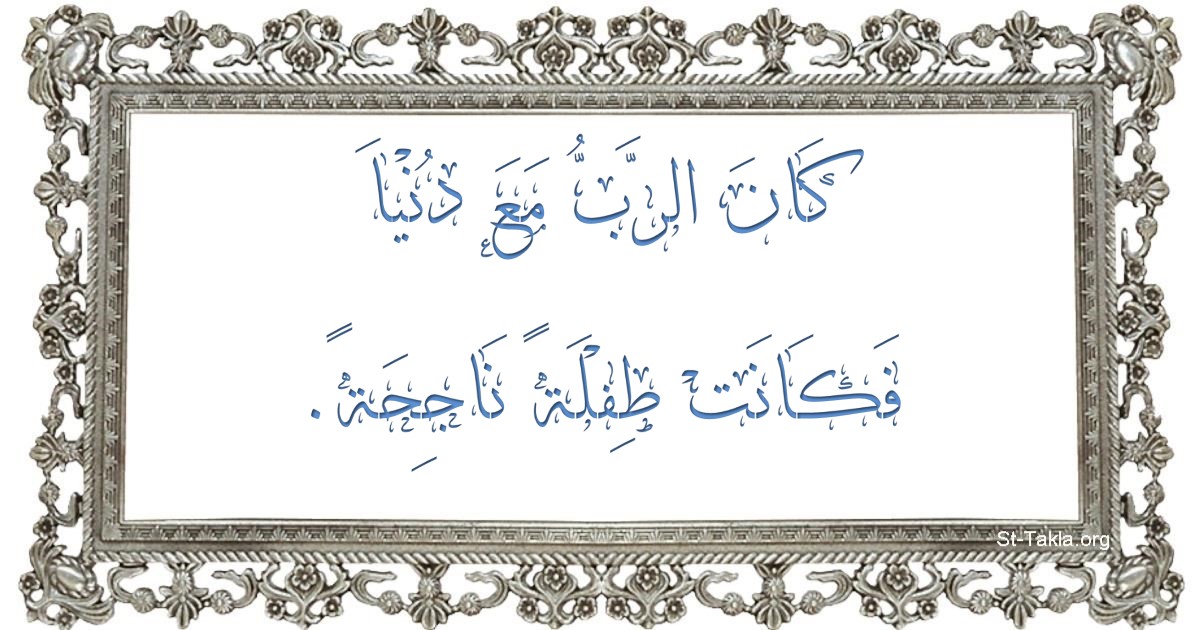 كَانَ الرَّبُّ مَعَ دُنْيَا
فَكَانَتْ طِفْلَةً نَاجِحَةً.
St-Takla.org